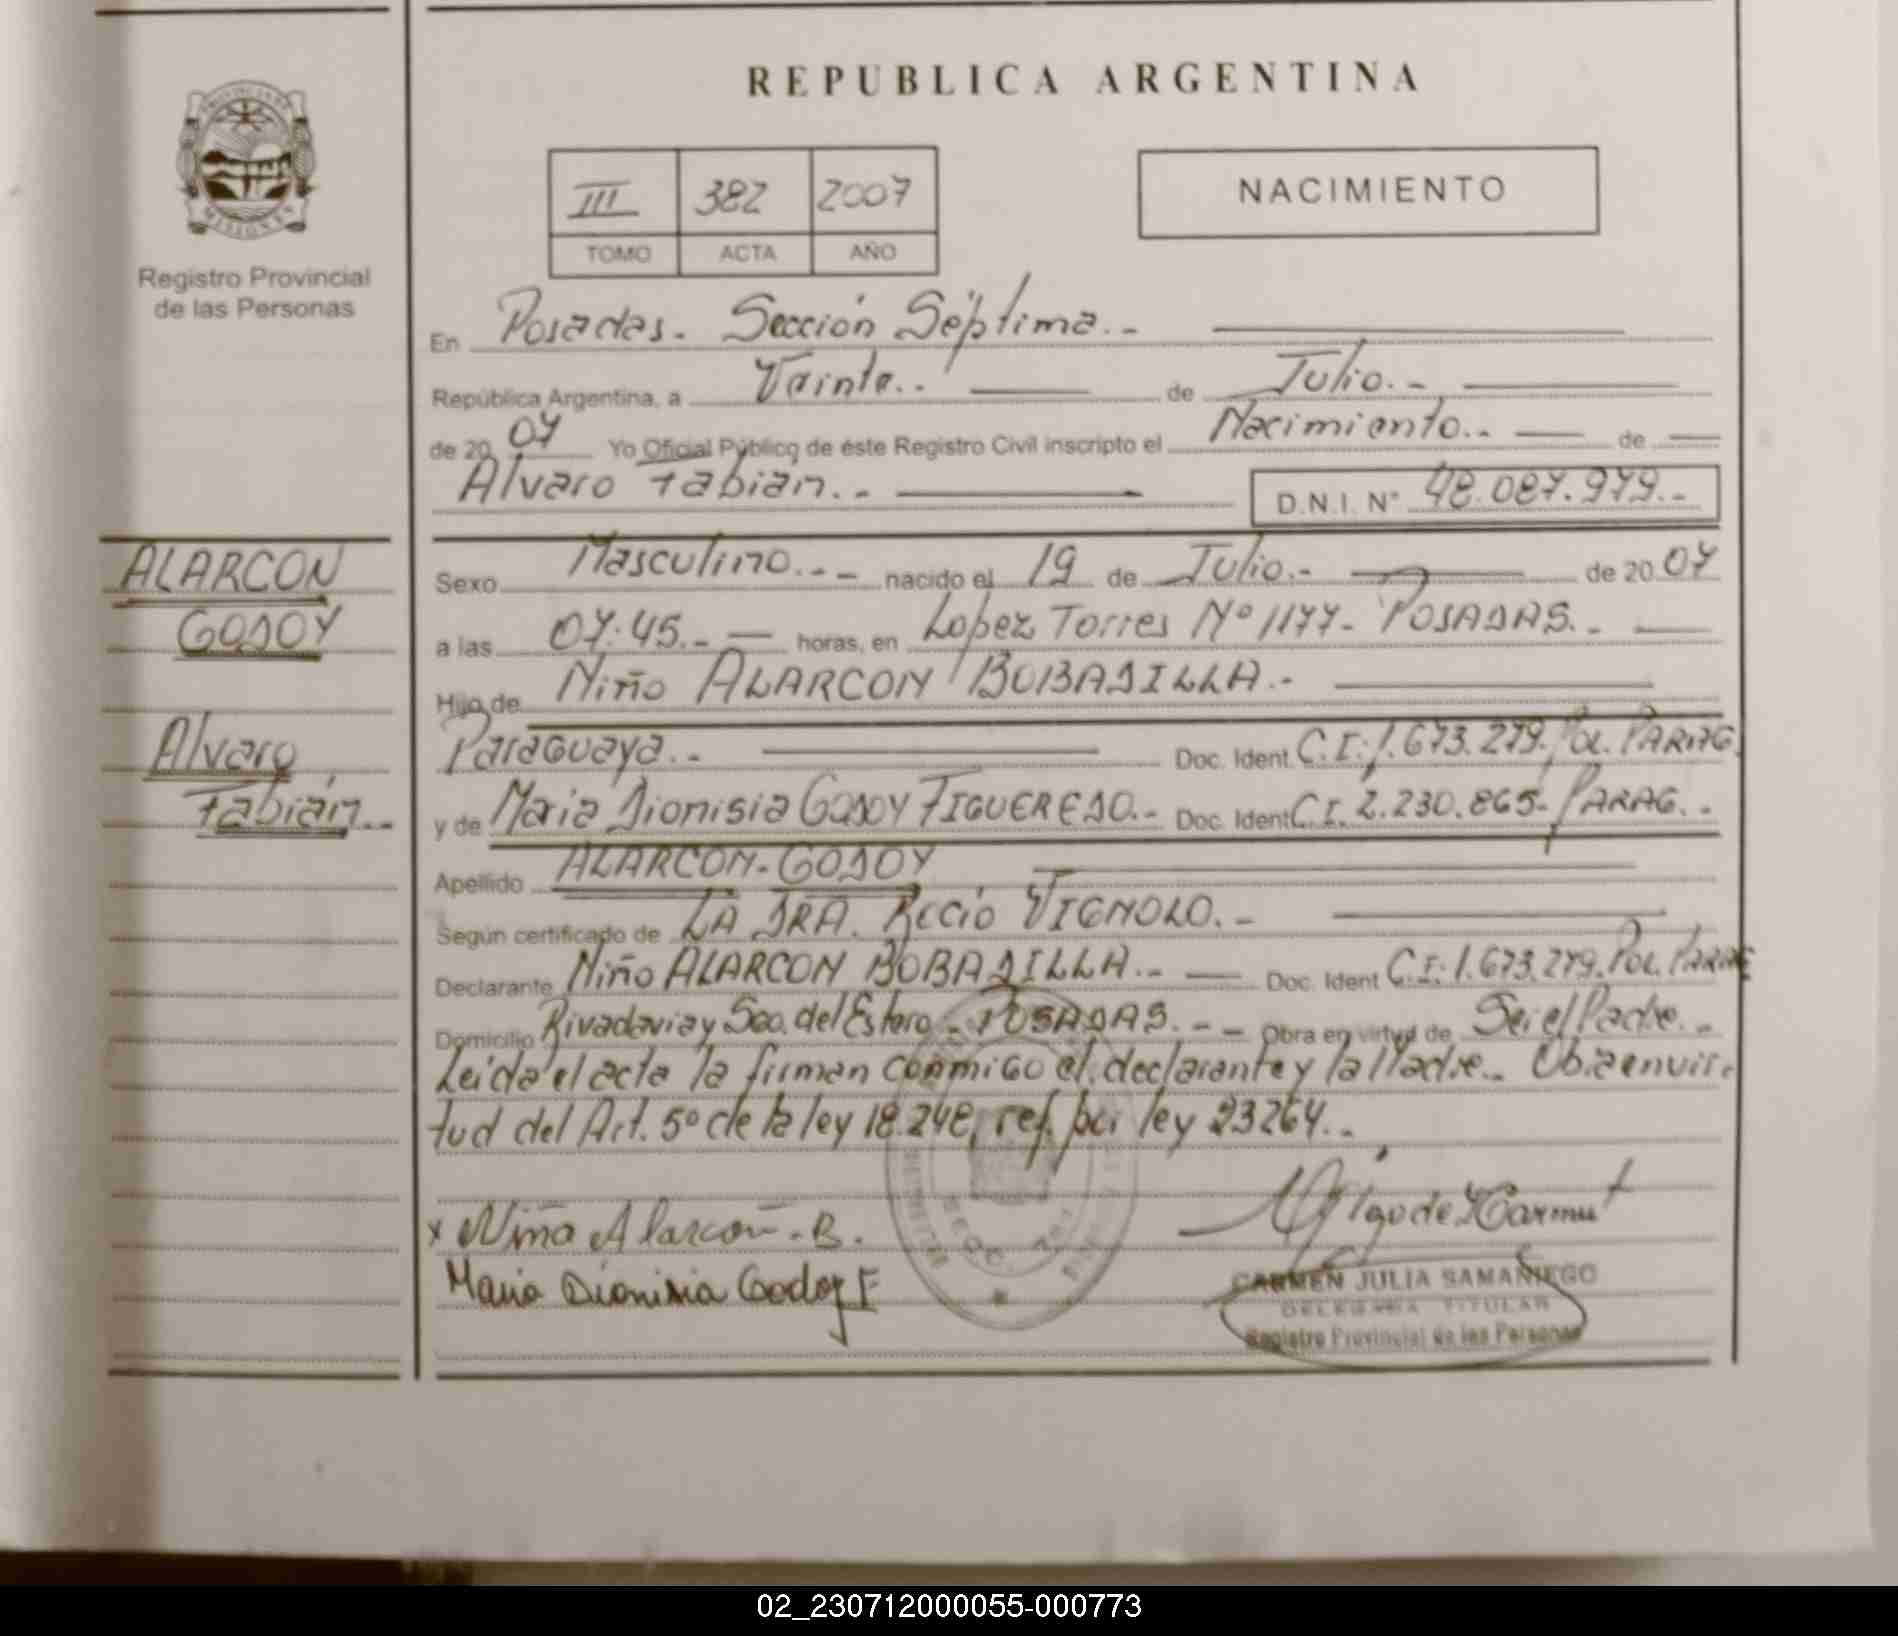 REPUBLICA ARGENTINA
PROVINCIA DE
MISIONES
Registro Provincial
de las Personas
III 382 2007
TOMO ACTA AÑO
NACIMIENTO
En Posadas.- Sección Séptima.-
República Argentina, a Veinte.. de Julio.-
de 2007 Yo Oficial Público de éste Registro Civil inscripto el Nacimiento.. de
Alvaro Fabián..- D.N.I. N° 48.087.979.-
ALARCON
GODOY
Alvaro
Fabián...
Sexo Masculino..-- nacido el 19 de Julio.- de 2007
a las 07:45.- horas, en Lopez Torres Nº 1177- POSADAS.-
Hijo de Niño ALARCON BOBADILLA.-
Paraguaya..- Doc. Ident. C.I: 1.673.279. Pol. PARAG.
y de Maria Dionisia GODOY FIGUEREDO.- Doc. Ident. C.I. 2.230.865- PARAG..-
Apellido ALARCON-GODOY
Según certificado de LA DRA. Rocio VIGNOLO.-
Declarante Niño ALARCON BOBADILLA..- Doc. Ident C.I: 1.673.279. Pol. PARAG
Domicilio Rivadavia y Sgo. del Estero - POSADAS.-- Obra en virtud de Ser el Padre..-
Leida el acta la firman conmigo el declarante y la Madre.. Obra en vir-
tud del Art. 5º de la ley 18.248, ref. por ley 23264..
x Niño Alarcon.B.
Maria Dionisia Godoy F
CARMEN JULIA SAMANIEGO
DELEGADA TITULAR
Registro Provincial de las Personas
02_230712000055-000773